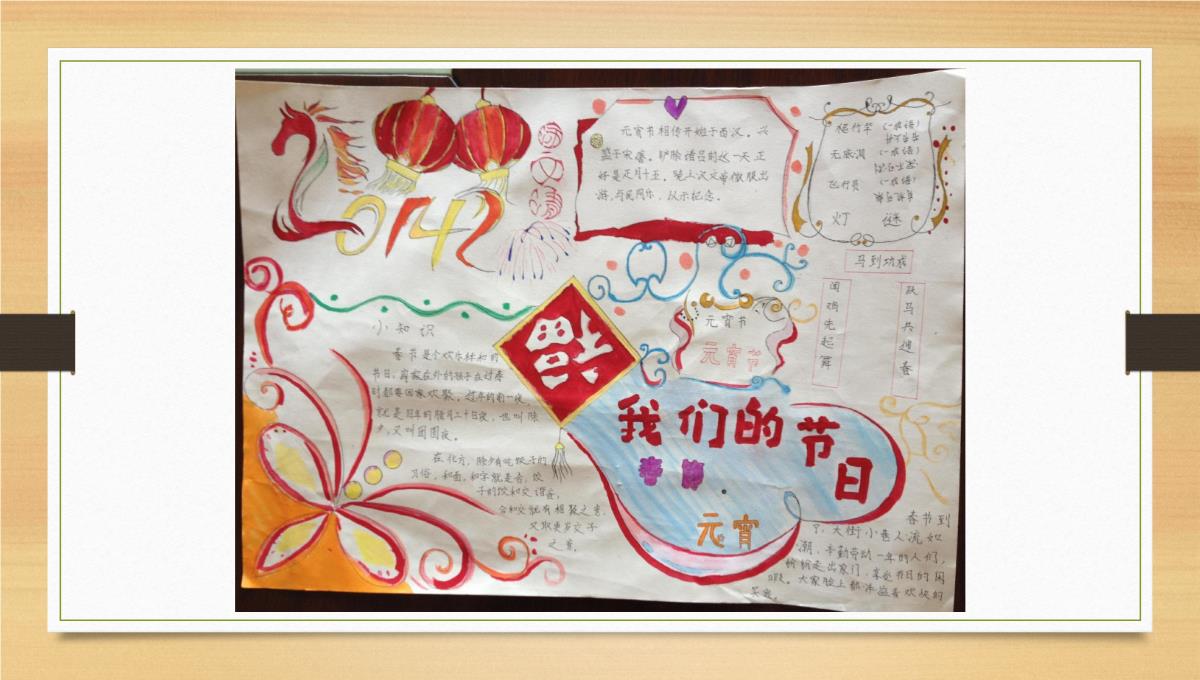 2014
元宵节相传开始于西汉。兴
盛于宋唐。铲除诸吕的这一天正
好是正月十五。晚上汉文帝微服出
游,与民同乐,以示纪念。
梧竹竿 (一成语)
无底洞 (一成语)
飞行员 (一成语)
灯 谜
马到功成
闻鸡先起舞
跃马共迎春
元宵节
元宵节
小知识
春节是个欢乐祥和的
节日。离家在外的孩子在过春
时都要回家欢聚。过年的前一夜,
就是旧年的腊月三十日夜,也叫除
夕,又叫团圆夜。
在北方,除夕有吃饺子的
习俗,和面,和字就是合,饺
子的饺和交谐音,
合和交就有相聚之意,
又取更岁交子
之意。
福
我们的节日
春节
元宵
春节到
了,大街小巷人流如
潮,辛勤劳动一年的人们,
纷纷走出家门,享受节日的闲
暇。大家脸上都洋溢着欢快的
笑容。